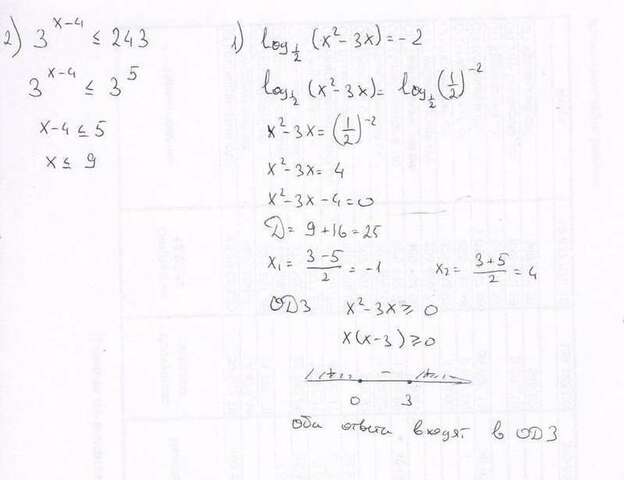 2) 3^(x-4) ≤ 243
3^(x-4) ≤ 3^5
x-4 ≤ 5
x ≤ 9
1) log_(1/2) (x² - 3x) = -2
log_(1/2) (x² - 3x) = log_(1/2) (1/2)^(-2)
x² - 3x = (1/2)^(-2)
x² - 3x = 4
x² - 3x - 4 = 0
D = 9 + 16 = 25
x₁ = (3-5)/2 = -1 x₂ = (3+5)/2 = 4
ОДЗ x² - 3x ≥ 0
x(x-3) ≥ 0
-
0 3
оба ответа входят в ОДЗ